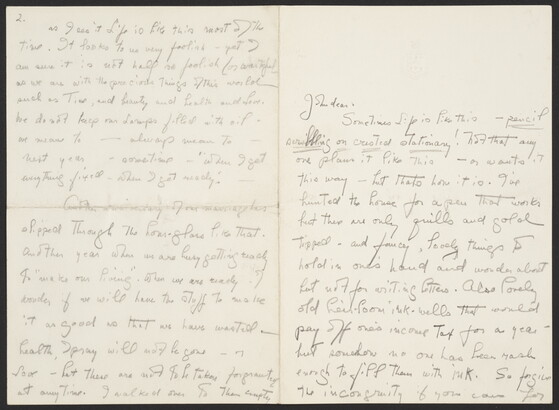 John dear.
Sometimes Life is like this — pencil
scribbling on crested stationary! Not that any
one plans it like this — or wants it
this way — but thats how it is. I've
hunted the house for a pen that works
but there are only quills and gold
tipped — and fancy, lovely things to
hold in one's hand and wonder about
but not for writing letters. Also lovely
old heir-loom ink-wells that would
pay off ones income tax for a year —
but somehow no one has been rash
enough to fill them with ink. So forgive
the incongruity if you can for
2.
as I isn't Life is like this most of the
time. It looks to us very foolish — yet I
am sure it is not half so foolish (or wasteful)
as we are with the precious things of this world
such as Time, and beauty and health and Love.
We do not keep our lamps filled with oil —
we mean to — always mean to
next year — sometime — "when I get
anything fixed — when I get ready."
slipped through the hour-glass like that.
Another year when we are busy getting ready
to "make our living" when we are ready. I
wonder if we will have the stuff to make
it as good as that we have wasted.
health, I pray will not be gone — or
Love — but these are not to be taken for granted
at any time. I walked over to then empty